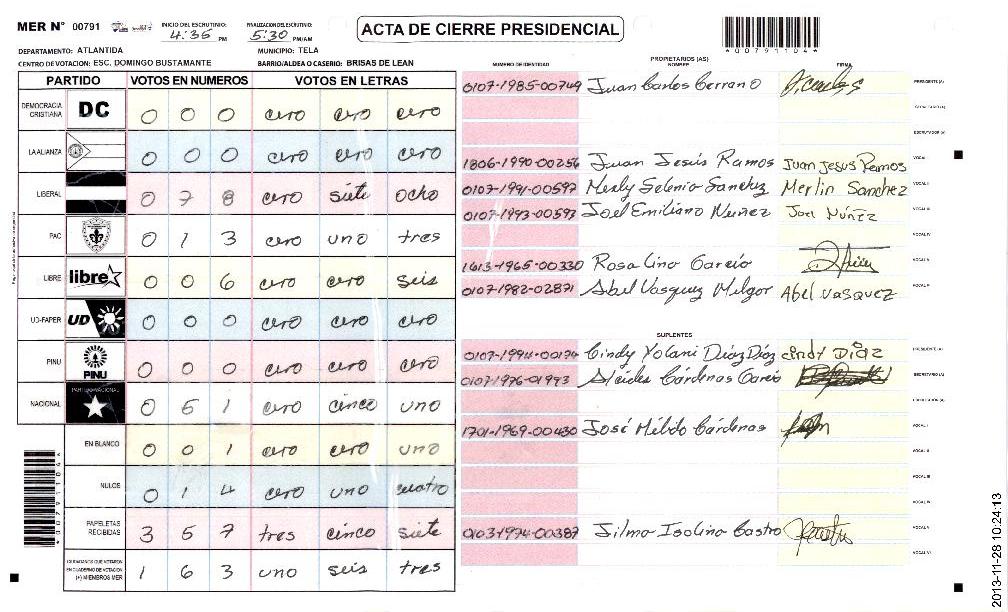 MER N° 00791 INICIO DEL ESCRUTINIO: 4:36 PM FINALIZACION ESCRUTINIO: 5:30 PM/AM
ACTA DE CIERRE PRESIDENCIAL
*00791104*
DEPARTAMENTO: ATLANTIDA MUNICIPIO: TELA
CENTRO DE VOTACION: ESC. DOMINGO BUSTAMANTE BARRIO/ALDEA O CASERIO: BRISAS DE LEAN
PARTIDO VOTOS EN NUMEROS VOTOS EN LETRAS
DEMOCRACIA CRISTIANA DC 0 0 0 cero cero cero
LA ALIANZA 0 0 0 cero cero cero
LIBERAL 0 7 8 cero siete ocho
PAC 0 1 3 cero uno tres
LIBRE libre 0 0 6 cero cero seis
UD-FAPER UD 0 0 0 cero cero cero
PINU PINU 0 0 0 cero cero cero
NACIONAL PARTIDO NACIONAL 0 5 1 cero cinco uno
EN BLANCO 0 0 1 cero cero uno
NULOS 0 1 4 cero uno cuatro
PAPELETAS RECIBIDAS 3 5 7 tres cinco siete
CIUDADANOS QUE VOTARON EN CUADERNO DE VOTACION (+) MIEMBROS MER 1 6 3 uno seis tres
*00791104*
PROPIETARIOS (AS)
NUMERO DE IDENTIDAD NOMBRE FIRMA
0107-1985-00749 Juan Carlos Cerrano PRESIDENTE (A)
SECRETARIO (A)
ESCRUTADOR (A)
1806-1990-00256 Juan Jesús Ramos Juan Jesus Ramos VOCAL I
0107-1991-00597 Merly Selenio Sanchez Merlin Sanchez VOCAL II
0107-1993-00593 Joel Emiliano Nuñez Joel Núñez VOCAL III
VOCAL IV
1613-1965-00330 Rosa Lino Garcia VOCAL V
0107-1982-02871 Abel Vasquez Melgar Abel Vasquez VOCAL VI
SUPLENTES
0107-1994-00174 Cindy Yolani Díaz Díaz Cindy Díaz PRESIDENTE (A)
0107-1976-01993 Cárdenas Garcia SECRETARIO (A)
ESCRUTADOR (A)
1701-1969-00430 José Cárdenas VOCAL I
VOCAL II
VOCAL III
VOCAL IV
0103-1974-00387 Isolina Castro VOCAL V
VOCAL VI
2013-11-28 10:24:13